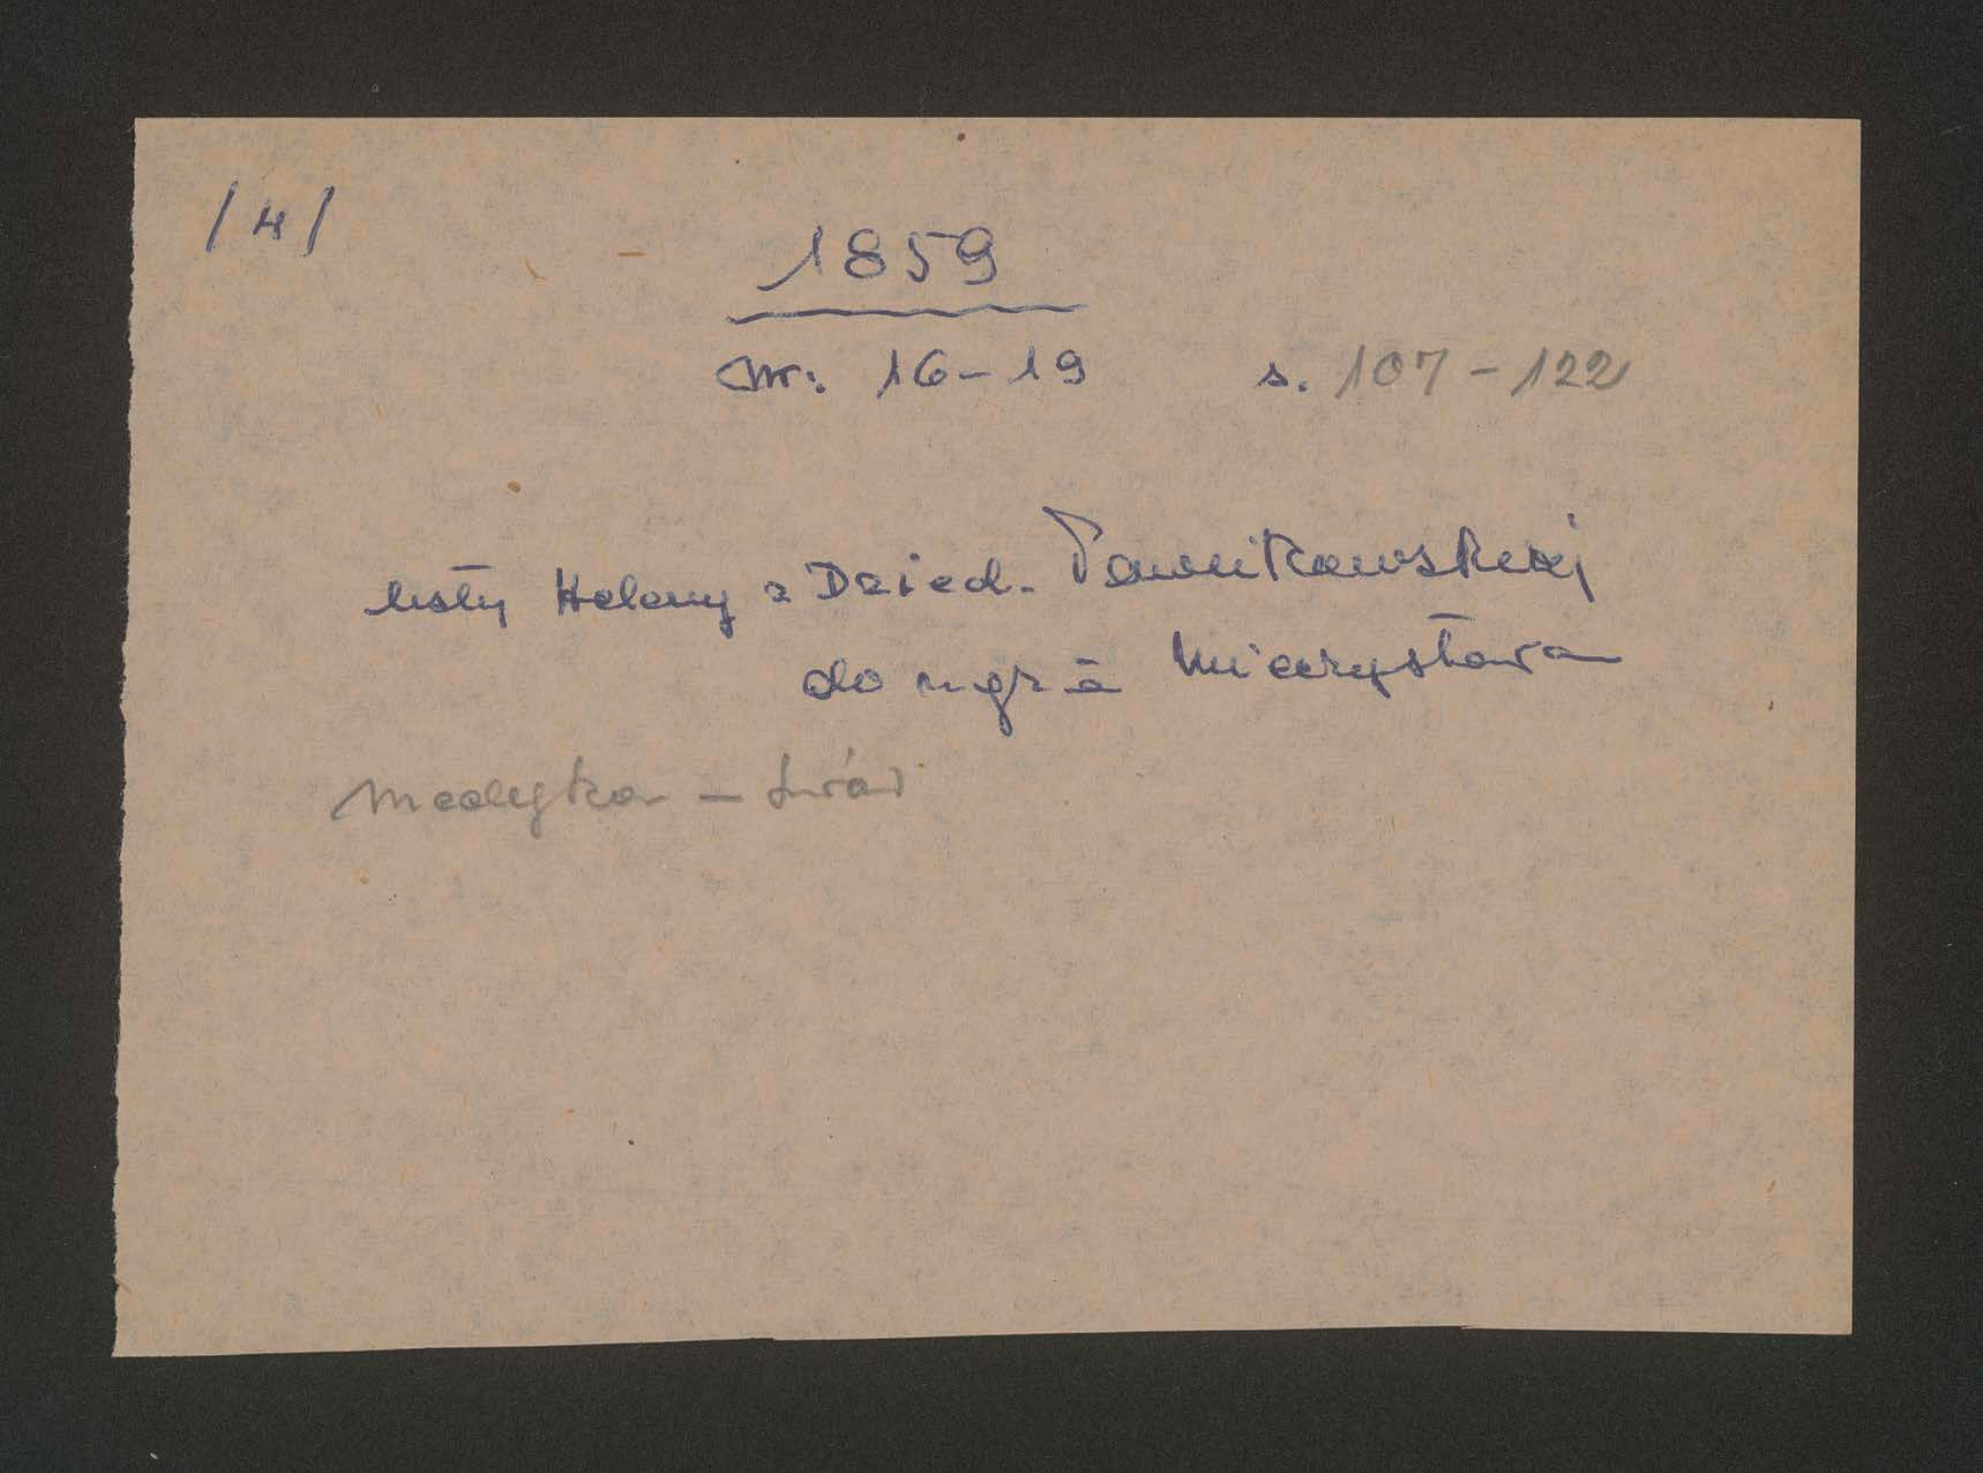 /4/
1859
Nr: 16-19 s. 107-122
listy Heleny z Dzied. Pawlikowskiej
do męża Mieczysława
Medyka - Lwów